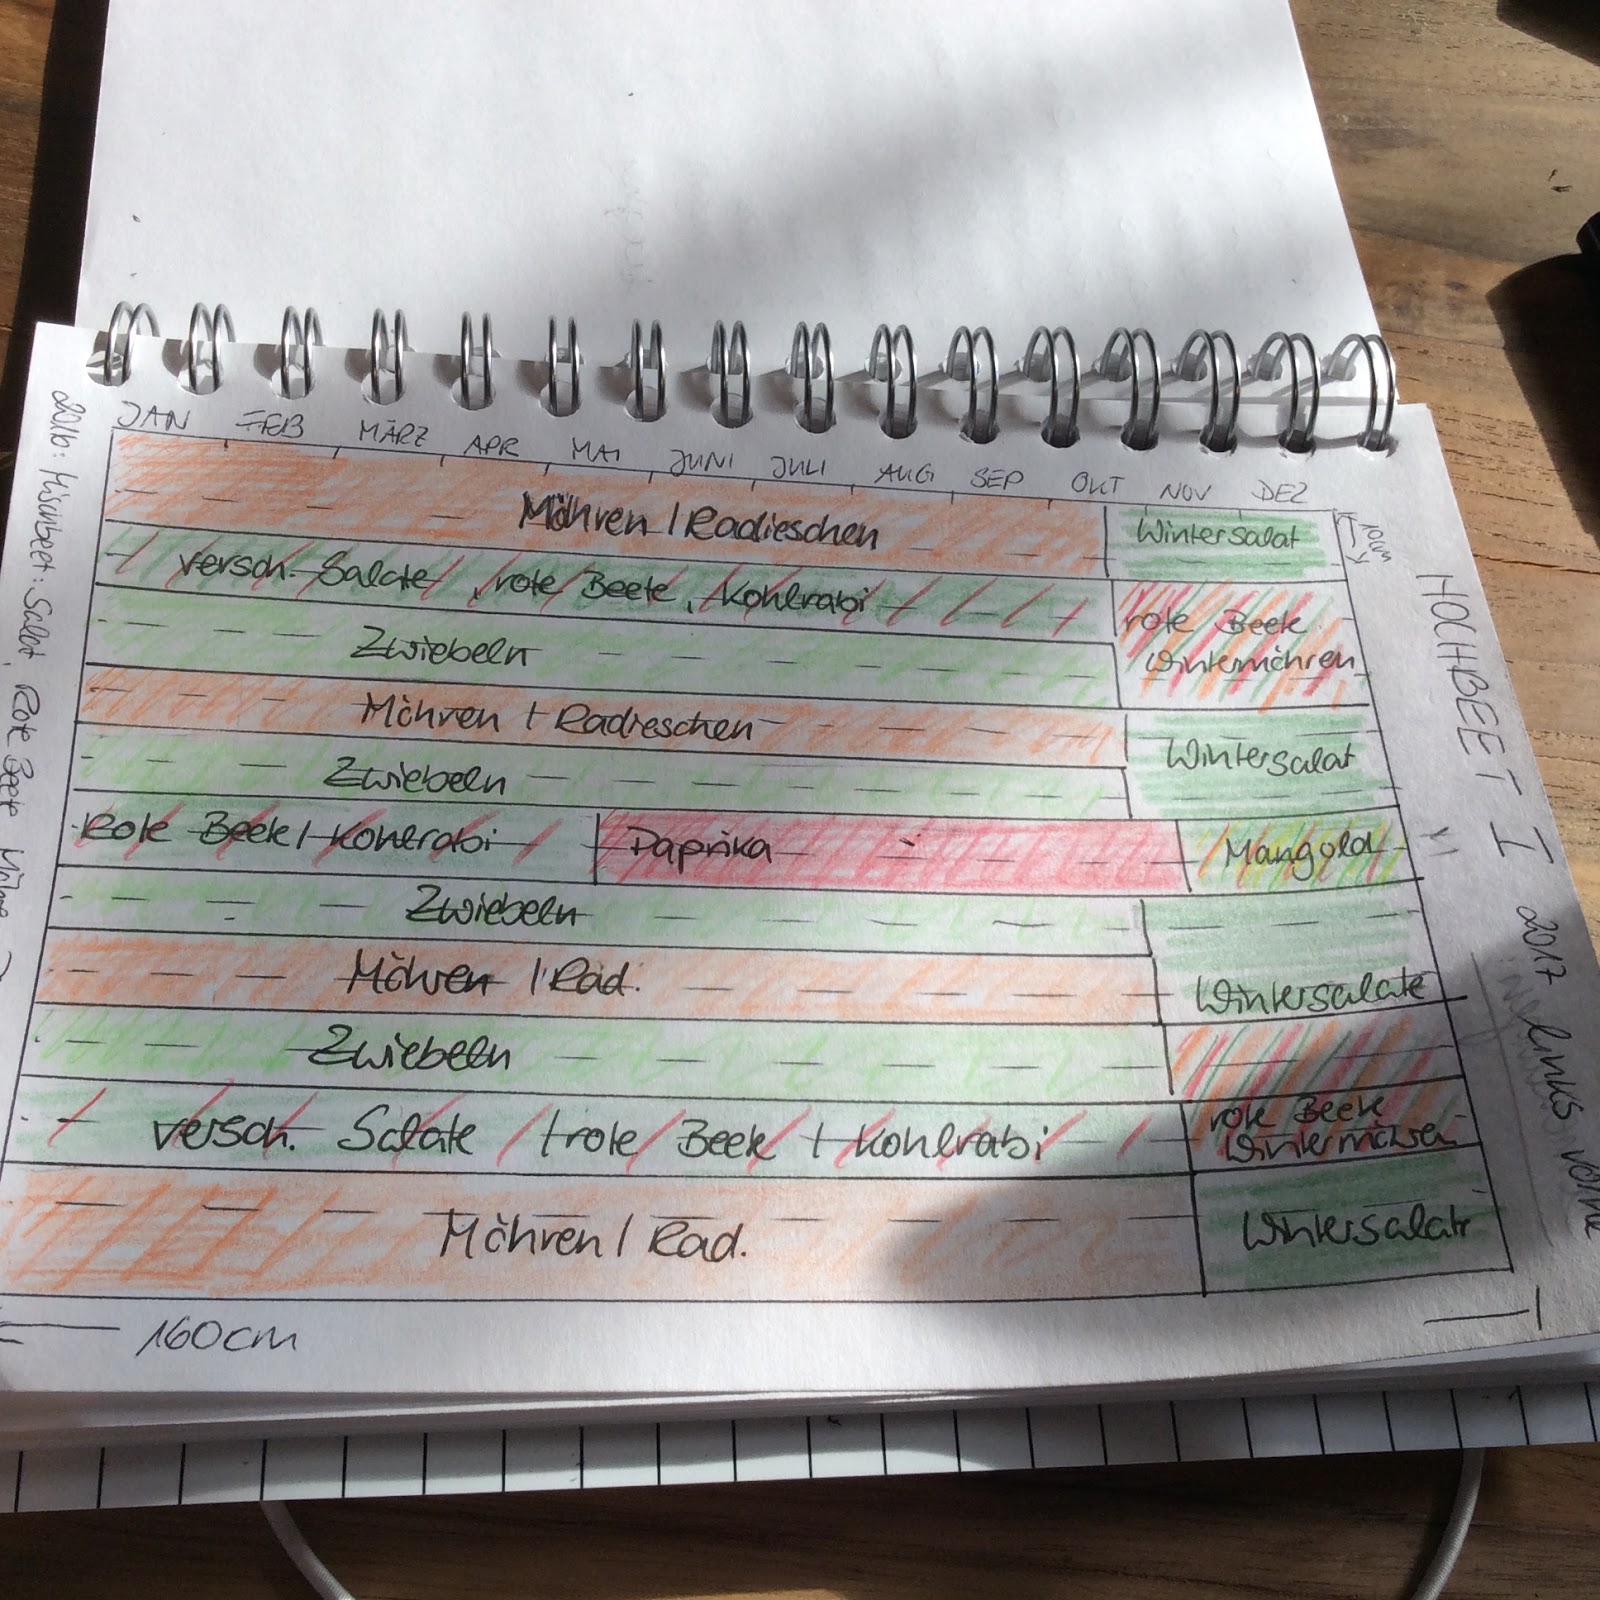 JAN FEB MÄRZ APR MAI JUNI JULI AUG SEP OKT NOV DEZ
Möhren / Radieschen Wintersalat
10cm
versch. Salate, rote Beete, Kohlrabi
rote Beete
Wintermöhren
Zwiebeln
Möhren / Radieschen
Wintersalat
Zwiebeln
Rote Beete / Kohlrabi Paprika Mangold
Zwiebeln
Wintersalate
Möhren / Rad.
Zwiebeln
rote Beete
Wintermöhren
versch. Salate / rote Beete / Kohlrabi
Möhren / Rad. Wintersalate
160cm
HOCHBEET I 2017 links vorne
2016: Mischbeet: Salat, Rote Beete Möhre